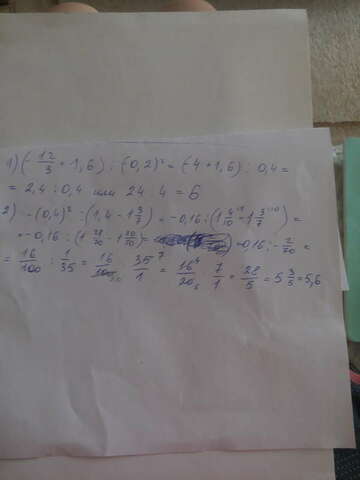 1) (-12/3 + 1,6) : (0,2)² = (-4 + 1,6) : 0,4 =
= 2,4 : 0,4 или 24 4 = 6
2) -(0,4)² : (1,4 - 1 3/7) = -0,16 : (1 4/10 - 1 3/7) =
= -0,16 : (1 28/70 - 1 30/70) = -0,16 : - 2/70 =
= 16/100 : 1/35 = 16/100 35/1 = 16/20 7/1 = 28/5 = 5 3/5 = 5,6